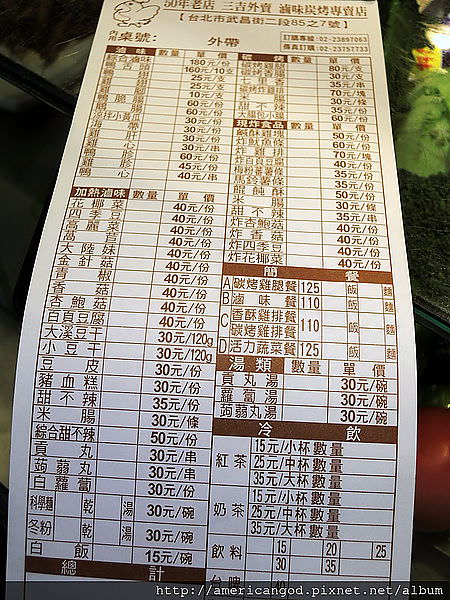 50年老店 三吉外賣 滷味炭烤專賣店
【台北市武昌街二段85之7號】
桌號: 外帶
訂購專線:02-23897063
傳真訂購:02-23757733
滷味 數量 單價
綜合滷味 180元/份
160元/10支
25元/支
25元/支
10元/支
60元/份
30元/份
涼拌小黃瓜 30元/份
30元/份
30元/份
60元/份
45元/份
40元/串
加熱滷味 數量 單價
花椰菜 40元/份
四季豆 40元/份
高麗菜 40元/份
萵苣 40元/份
大陸妹 40元/份
金針菇 40元/份
青椒 40元/份
香菇 40元/份
杏鮑菇 40元/份
百頁豆腐 40元/份
大溪豆干 30元/120g
小豆干 30元/120g
豆皮 30元/份
豬血糕 30元/份
甜不辣 35元/份
米腸 30元/條
綜合甜不辣 50元/份
貢丸 30元/串
蒟蒻丸 30元/串
白蘿蔔 30元/份
科學麵 乾 湯 30元/碗
冬粉 乾 湯 30元/碗
白飯 15元/碗
總計
數量 單價
碳烤香腸
甜不辣
大腸包小腸 60元/份
現炸食品 數量 單價
鹹酥雞塊 50元/份
炸魷魚條 60元/份
大雞排 70元/塊
炸百頁豆腐 40元/份
梅粉蕃薯條 35元/份
50元/份
餛飩酥 35元/份
米腸 30元/條
甜不辣 35元/串
炸杏鮑菇 40元/份
炸香菇 40元/份
炸四季豆 40元/份
炸花椰菜 40元/份
簡餐
A 碳烤雞腿餐 125 飯 麵
B 滷味餐 110 飯 麵
C 香酥雞排餐
碳烤雞排餐 110 飯 麵
D 活力蔬菜餐 125 飯 麵
湯類 數量 單價
貢丸湯 30元/碗
蘿蔔湯 30元/碗
蒟蒻丸湯 30元/碗
冷飲
紅茶 15元/小杯數量
25元/中杯數量
35元/大杯數量
奶茶 15元/小杯數量
25元/中杯數量
35元/大杯數量
飲料 15 20 25
30 35
台啤 40
http://americangod.pixnet.net/album